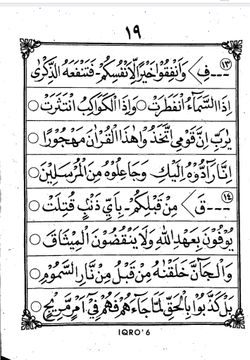 ١٩
١٣ ـــ فِ > وَاَنْفِقُوْا خَيْرًا لِّاَنْفُسِكُمْ - فَتَنْفَعَهُ الذِّكْرٰى
اِذَا السَّمَآءُ انْفَطَرَتْ ○ وَاِذَا الْكَوَاكِبُ انْتَثَرَتْ ○
يٰرَبِّ اِنَّ قَوْمِى اتَّخَذُوْا هٰذَا الْقُرْاٰنَ مَهْجُوْرًا ○
اِنَّا رَآدُّوْهُ اِلَيْكِ وَجَاعِلُوْهُ مِنَ الْمُرْسَلِيْنَ ○
١٤ ـــ قَ > مِنْ قَبْلِكُمْ - بِاَيِّ ذَنْۢبٍ قُتِلَتْ ○
يُوْفُوْنَ بِعَهْدِ اللّٰهِ وَلَا يَنْقُضُوْنَ الْمِيْثَاقَ ○
وَالْجَآنَّ خَلَقْنٰهُ مِنْ قَبْلُ مِنْ نَّارِ السَّمُوْمِ ○
بَلْ كَذَّبُوْا بِالْحَقِّ لَمَّا جَآءَهُمْ فَهُمْ فِيْٓ اَمْرٍ مَّرِيْجٍ ○
IQRO' 6